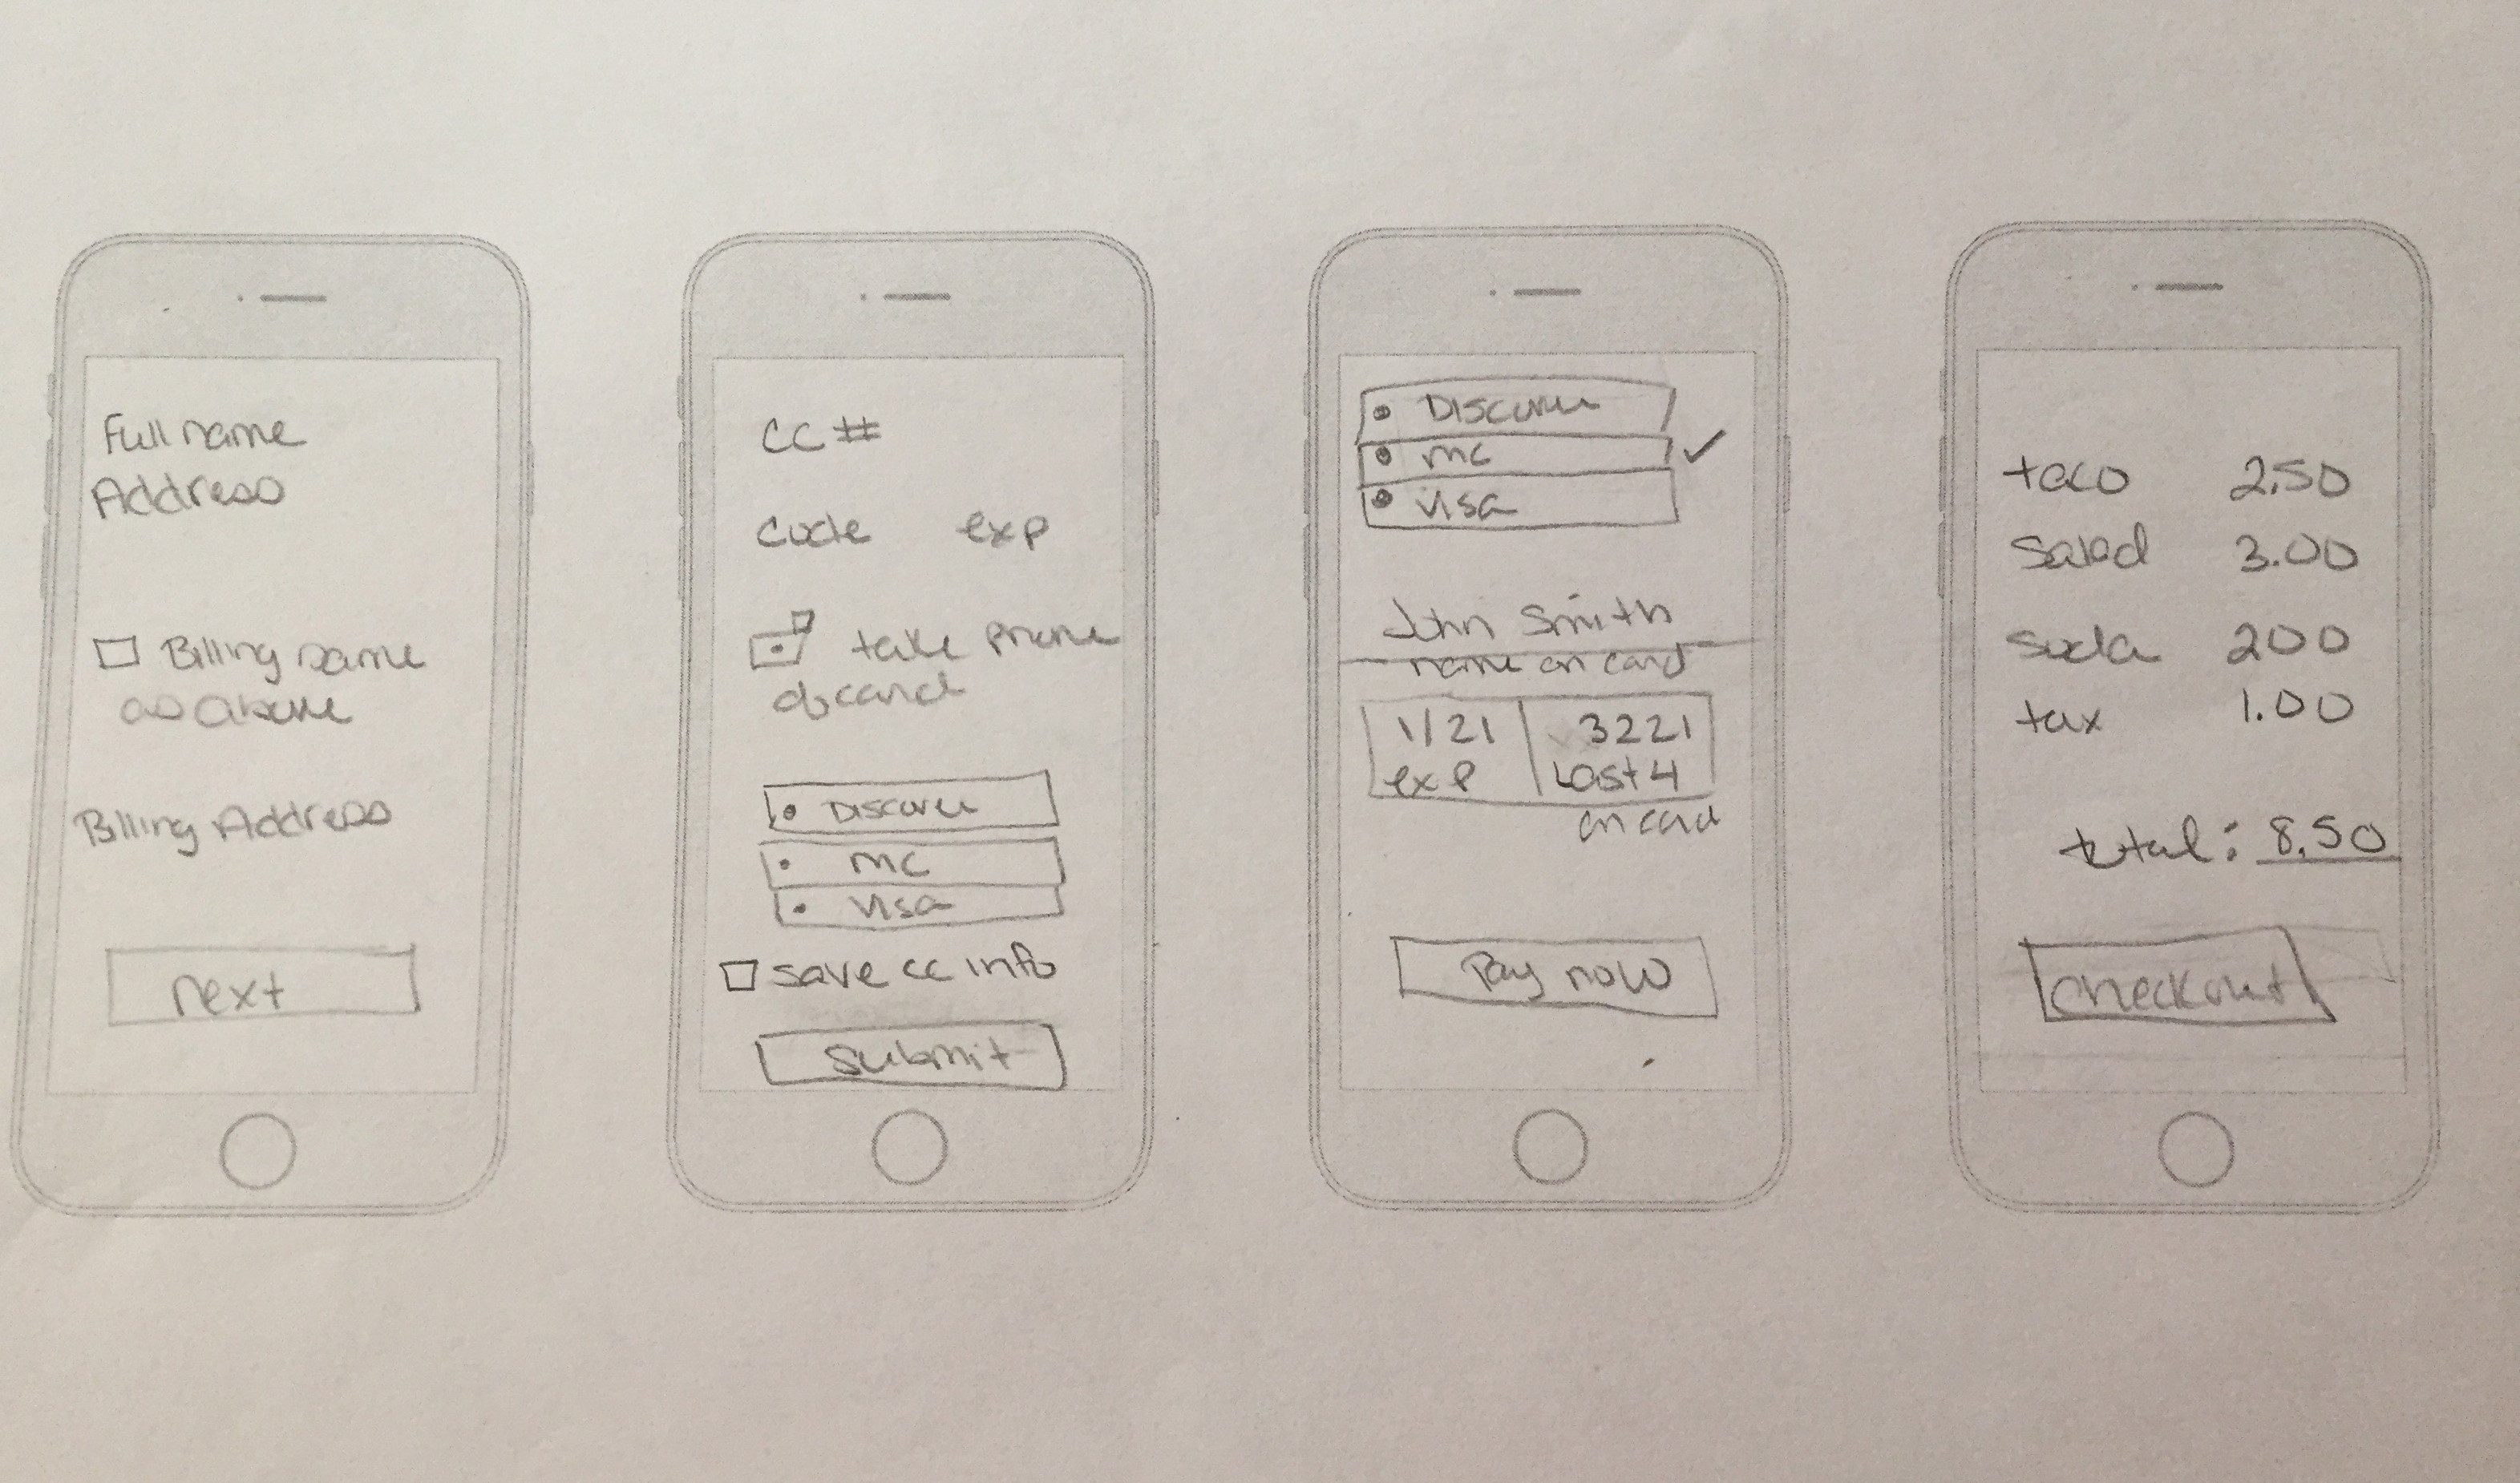 Full name
Address
Billing same
as above
Billing Address
next
CC #
code exp
take phone
of card
Discover
mc
visa
save cc info
submit
Discover
mc
visa
John Smith
name on card
1/21 3221
exp Last 4
on card
Pay now
taco 2.50
Salad 3.00
soda 200
tax 1.00
total: 8.50
checkout